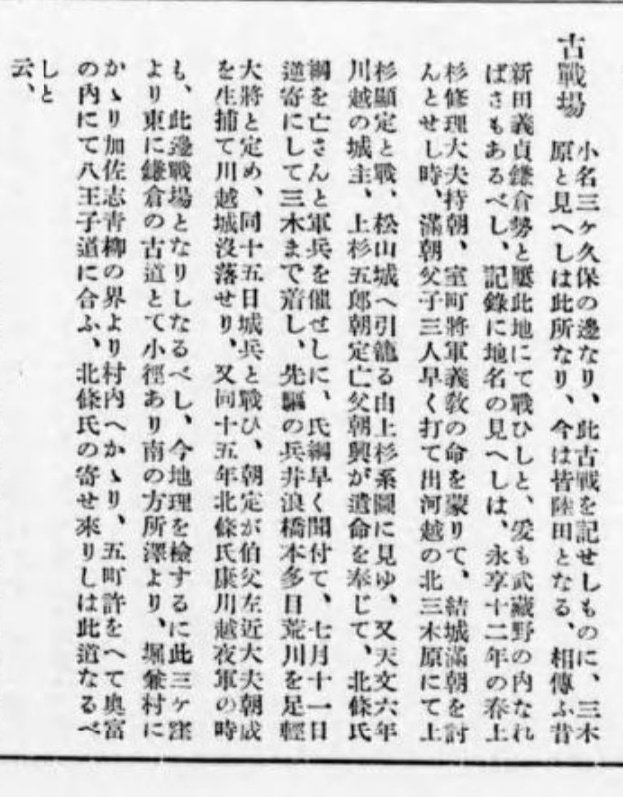 古戰場
小名三ケ久保の邊なり、此古戰を記せしものに、三木
原と見へしは此所なり、今は皆陸田となる、相傳ふ昔
新田義貞鎌倉勢と屢此地にて戰ひしと、爰も武藏野の内なれ
ばさもあるべし、記錄に地名の見へしは、永享十二年の春上
杉修理大夫持朝、室町將軍義敎の命を蒙りて、結城滿朝を討
んとせし時、滿朝父子三人早く打て出河越の北三木原にて上
杉顯定と戰、松山城へ引籠る由上杉系圖に見ゆ、又天文六年
川越の城主、上杉五郎朝定亡父朝興が遺命を奉じて、北條氏
綱を亡さんと軍兵を催せしに、氏綱早く聞付て、七月十一日
道寄にして三木まで着し、先驅の兵井浪橋本多目荒川を足輕
大將と定め、同十五日城兵と戰ひ、朝定が伯父左近大夫朝成
を生捕て川越城沒落せり、又同十五年北條氏康川越夜軍の時
も、此邊戰場となりしなるべし、今地理を檢するに此三ケ窪
より東に鎌倉の古道とて小徑あり南の方所澤より、堀兼村に
かゝり加佐志青柳の界より村内へかゝり、五町許をへて奥富
の内にて八王子道に合ふ、北條氏の寄せ來りしは此道なるべ
しと
云、